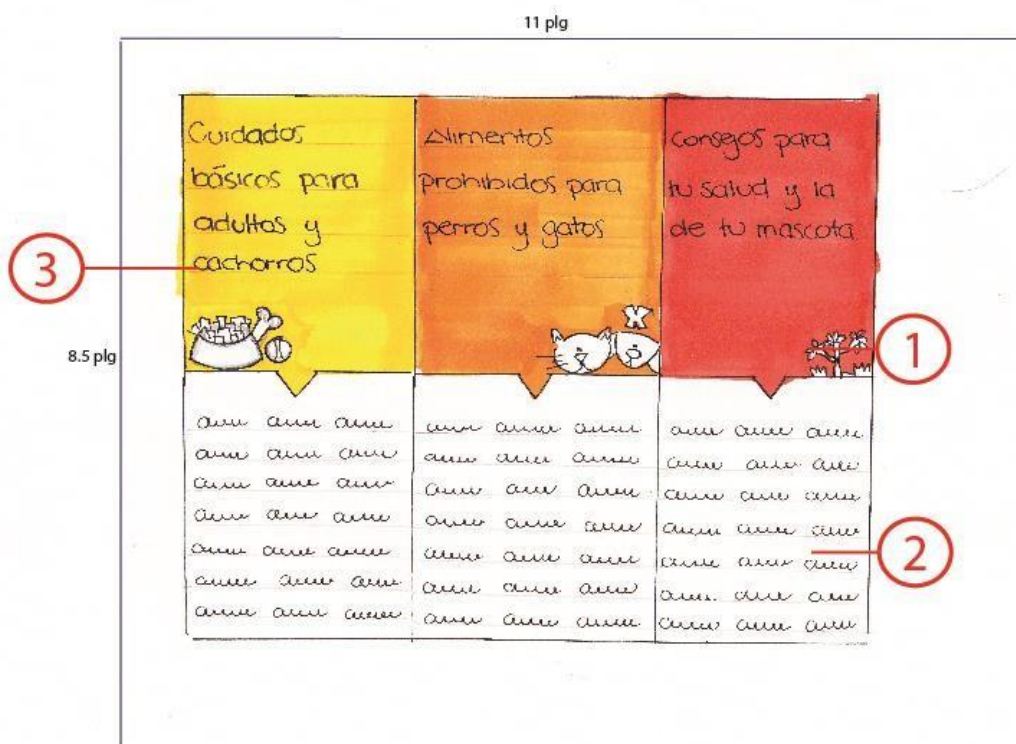 11 plg
Cuidados
básicos para
adultos y
cachorros
Alimentos
prohibidos para
perros y gatos
consejos para
tu salud y la
de tu mascota
3
1
8.5 plg
2